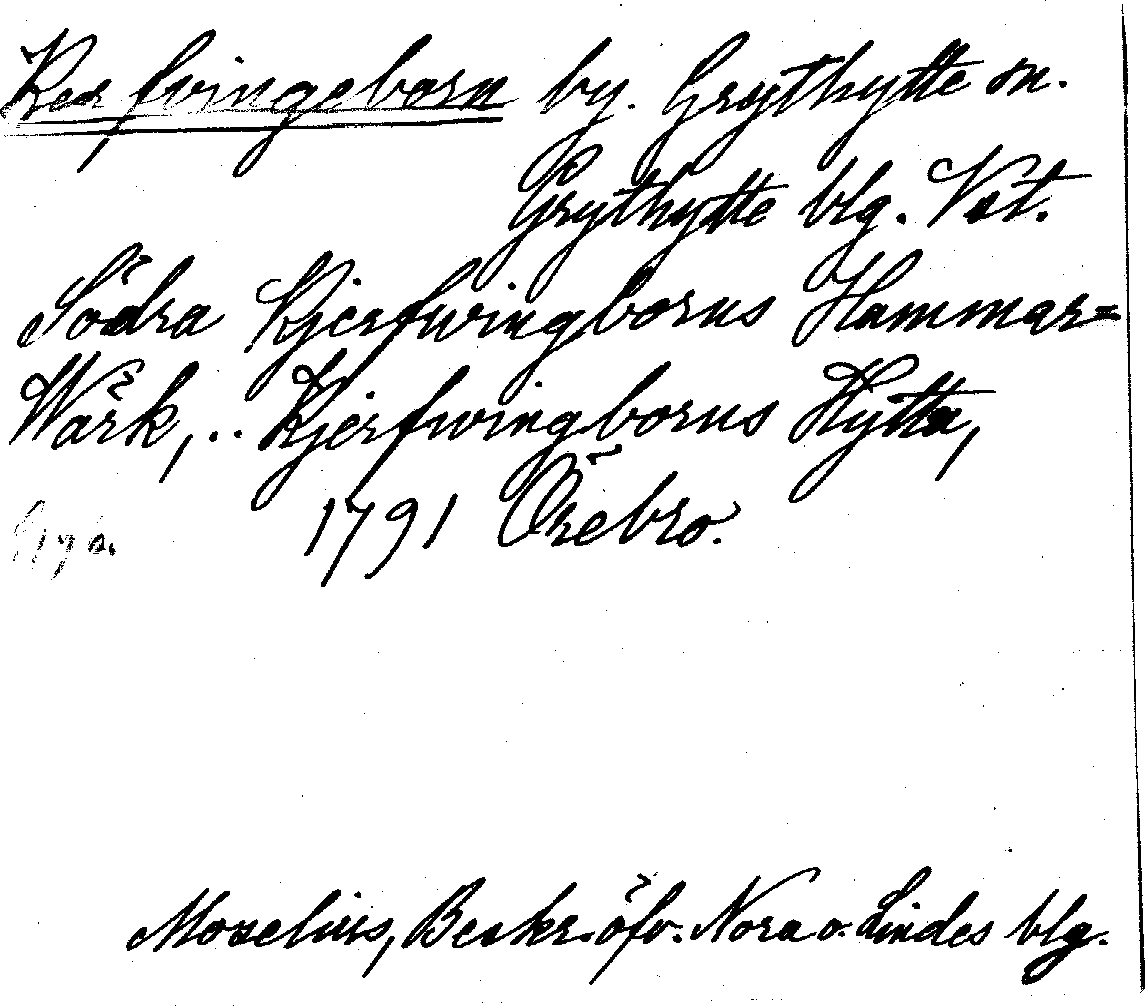 Kerfvingeborn by. Grythytte sn.
Grythytte blg. Vstl.
Södra Kjerfwingborns Hammar=
Wärk, .. Kjerfwingborns Hytta,
1791 Örebro.
Moselius, Beskr. öfv. Nora o. Lindes blg.